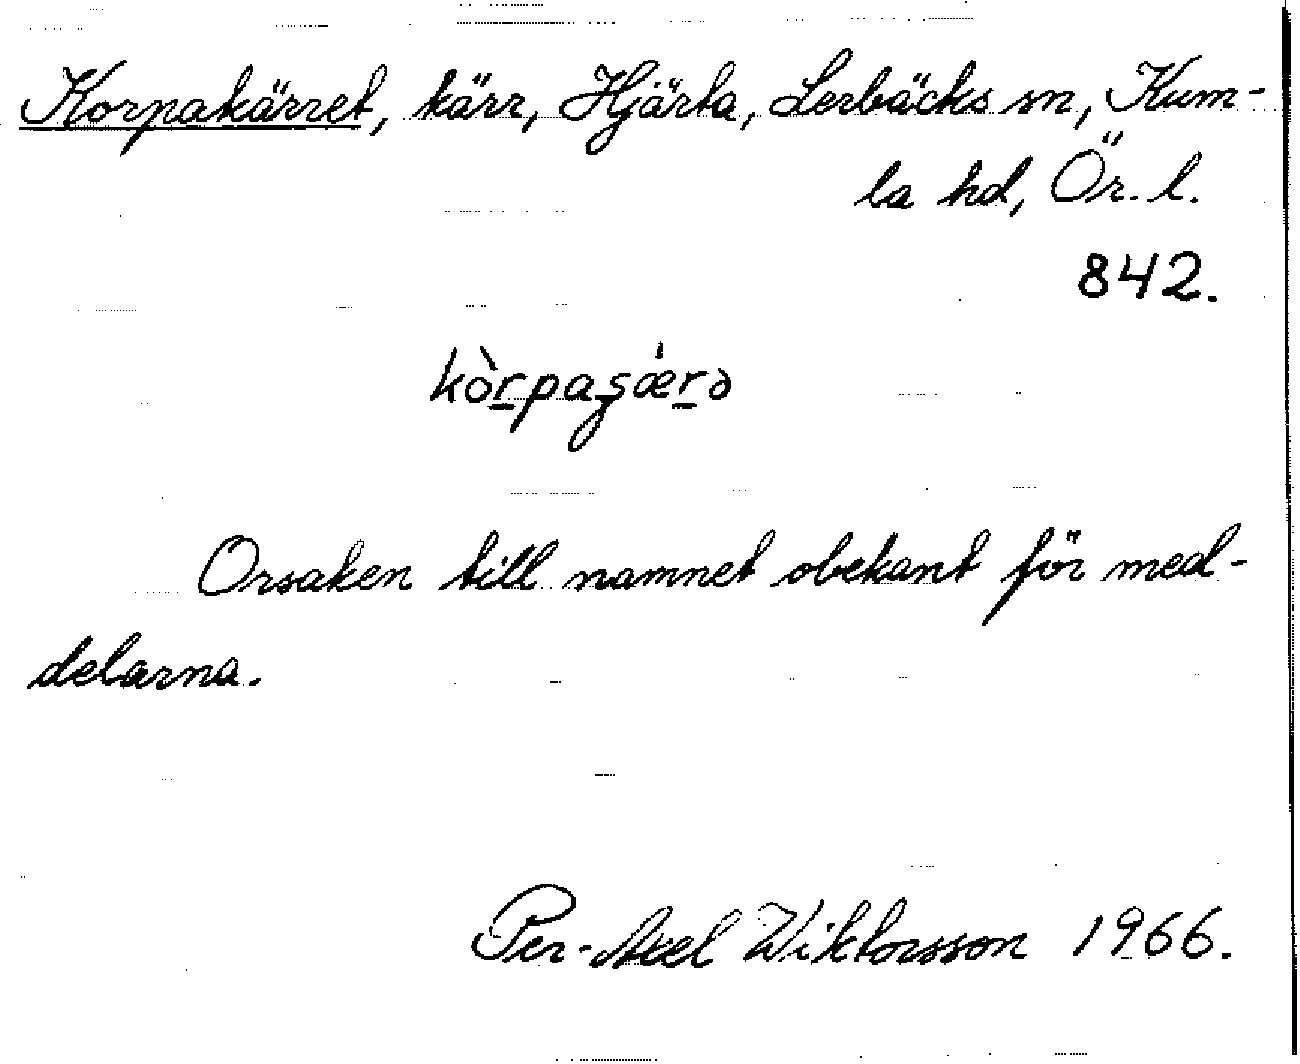 Korpakärret, kärr, Hjärta, Lerbäcks sn, Kum-
la hd, Ör. l.
842.
kòrpaʂǽrə
Orsaken till namnet obekant för med-
delarna.
Per-Axel Wiktorsson 1966.